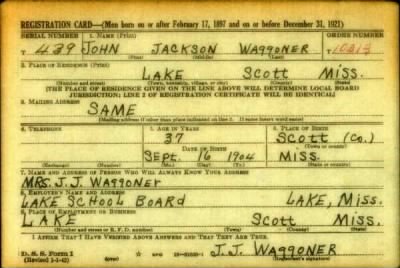 REGISTRATION CARD—(Men born on or after February 17, 1897 and on or before December 31, 1921)
SERIAL NUMBER 1. NAME (Print) ORDER NUMBER
T 439 JOHN JACKSON WAGGONER 10213
(First) (Middle) (Last)
2. PLACE OF RESIDENCE (Print)
LAKE SCOTT MISS.
(Number and street) (Town, township, village, or city) (County) (State)
[THE PLACE OF RESIDENCE GIVEN ON THE LINE ABOVE WILL DETERMINE LOCAL BOARD
JURISDICTION; LINE 2 OF REGISTRATION CERTIFICATE WILL BE IDENTICAL]
3. MAILING ADDRESS
SAME
[Mailing address if other than place indicated on line 2. If same insert word same]
4. TELEPHONE 5. AGE IN YEARS 6. PLACE OF BIRTH
37 SCOTT (CO.)
DATE OF BIRTH (Town or county)
SEPT. 16 1904 MISS.
(Exchange) (Number) (Mo.) (Day) (Yr.) (State or country)
7. NAME AND ADDRESS OF PERSON WHO WILL ALWAYS KNOW YOUR ADDRESS
MRS. J. J. WAGGONER
8. EMPLOYER'S NAME AND ADDRESS
LAKE SCHOOL BOARD LAKE, MISS.
9. PLACE OF EMPLOYMENT OR BUSINESS
LAKE SCOTT MISS.
(Number and street or R. F. D. number) (Town) (County) (State)
I AFFIRM THAT I HAVE VERIFIED ABOVE ANSWERS AND THAT THEY ARE TRUE.
D. S. S. Form 1 J. J. WAGGONER
(Revised 1-1-42) (Registrant's signature)